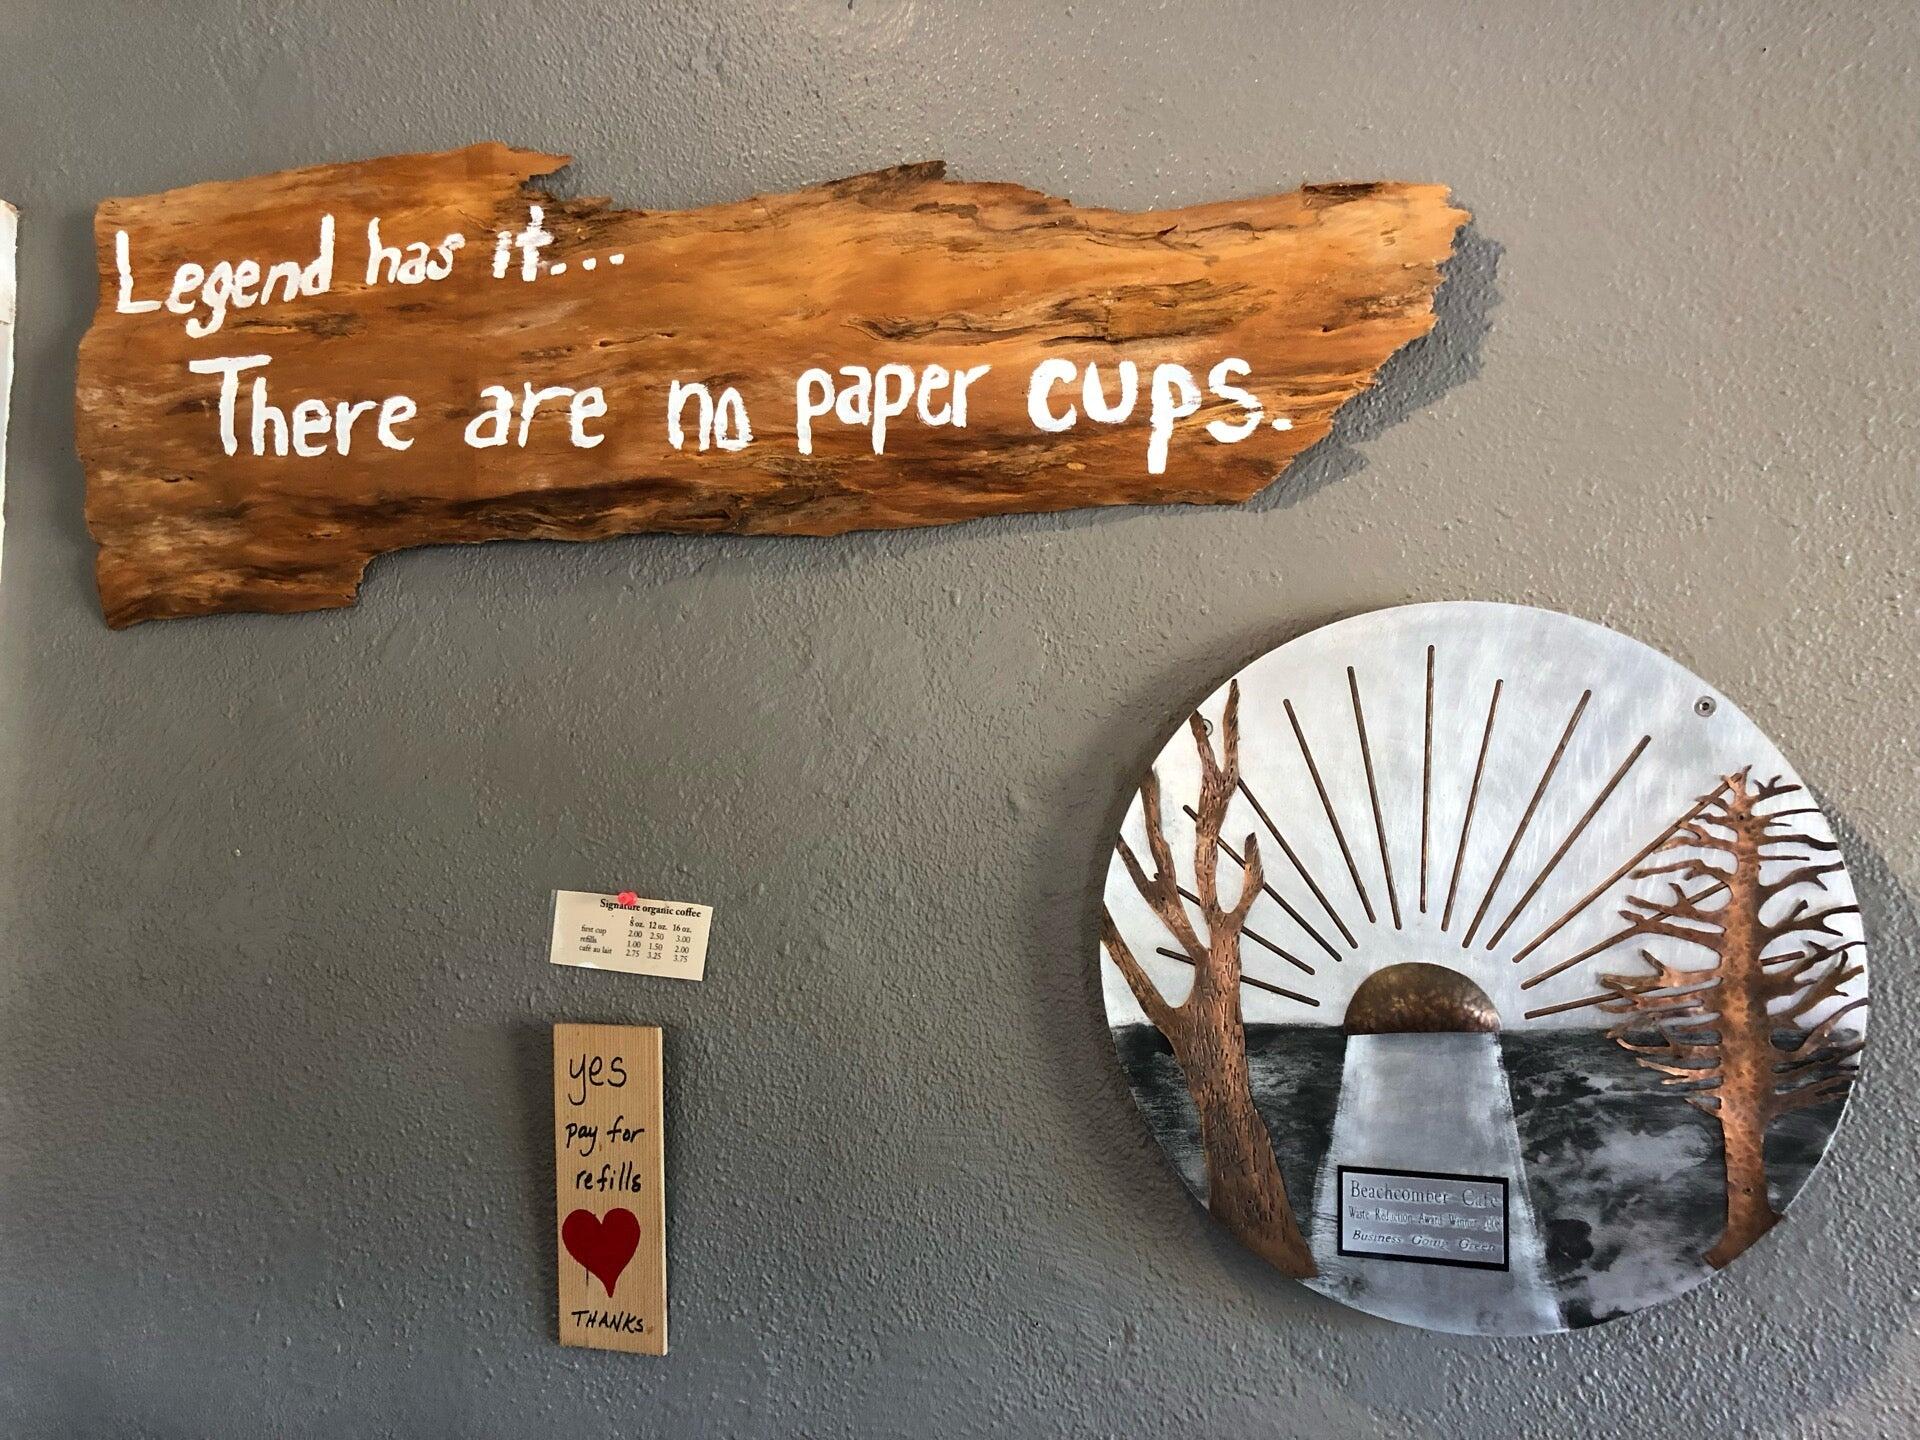 Legend has it...
There are no paper cups.
Signature organic coffee
8 oz. 12 oz. 16 oz.
first cup 2.00 2.50 3.00
refills 1.00 1.50 2.00
café au lait 2.75 3.25 3.75
yes
pay for
refills
THANKS
Beachcomber Cafe
Waste Reduction Award Winner
Business Going Green